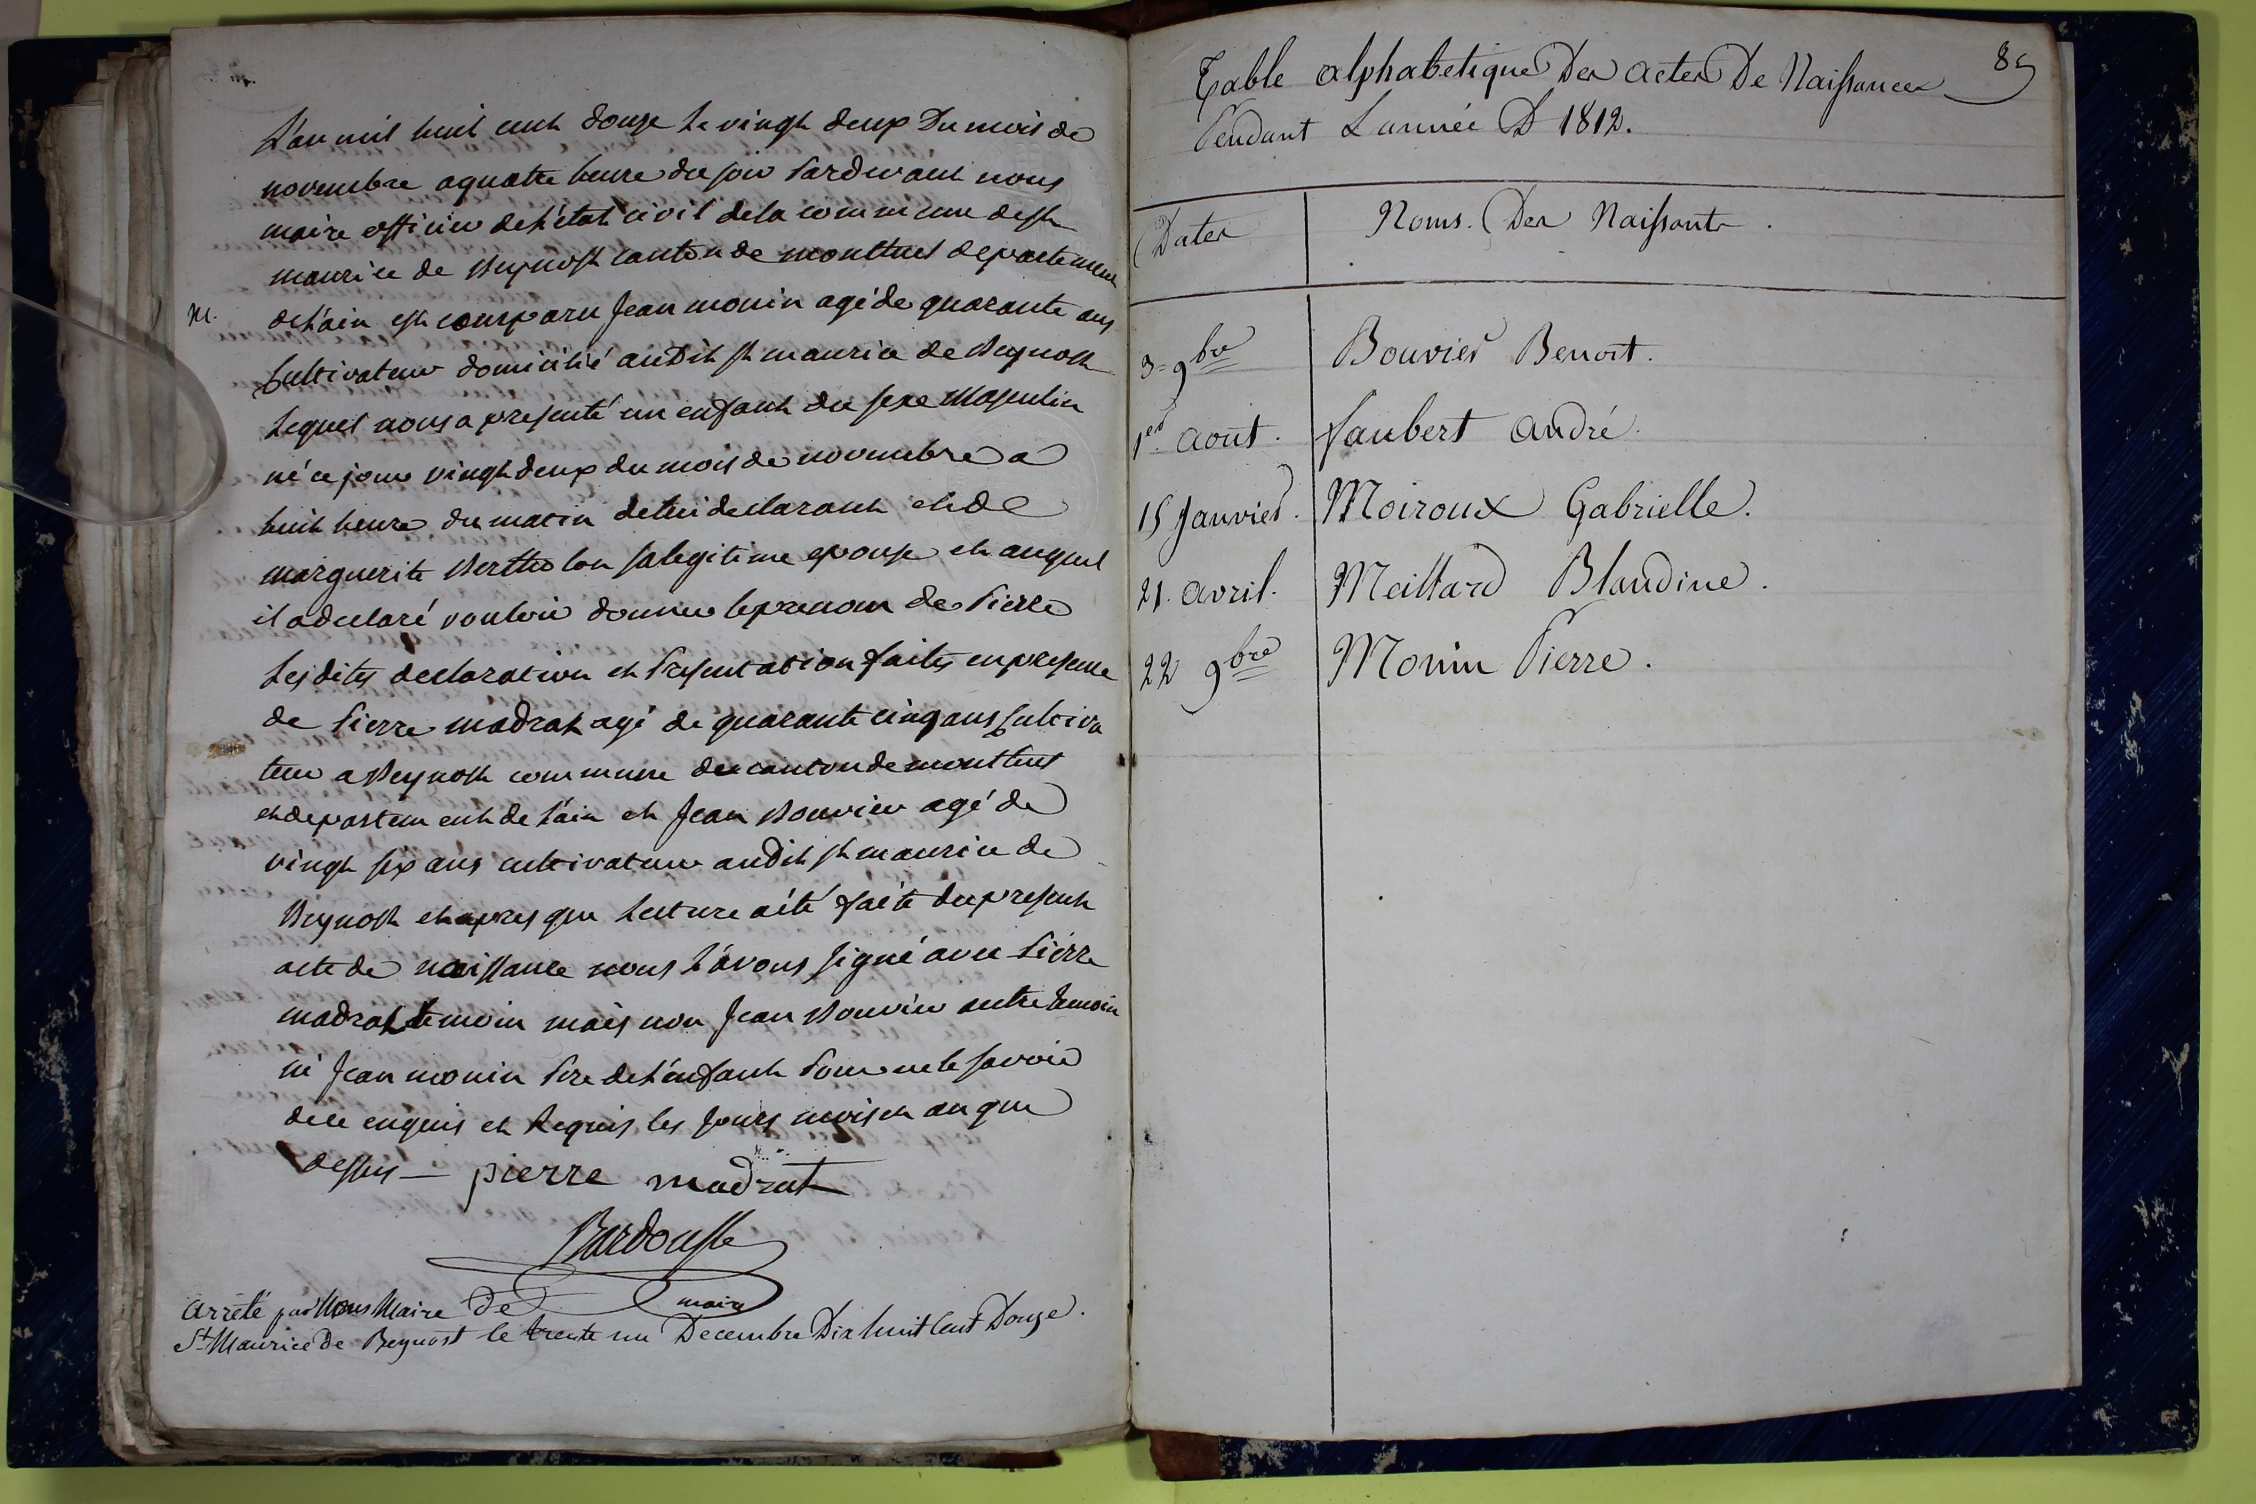 L'an mil huit cent douze le vingt deux du mois de
novembre a quatre heure du soir Pardevant nous
maire officier de l'état civil de la commune de st
maurice de Beynost canton de montluel departement
M.
de l'ain est comparu Jean monin agé de quarante ans
Cultivateur domicilié audit st maurice de Beynost
Lequel nous a presenté un enfant du sexe Masculin
né ce jour vingt deux du mois de novembre a
huit heure du matin de lui declarant et de
marguerite Bertholon sa legitime epouse et auquel
il a declaré vouloir donner le prenom de Pierre
Lesdites declaration et Presentation faites en presence
de Pierre madrat agé de quarante cinq ans Cultiva
teur a Beynost commune du canton de montluel
et departement de l'ain et Jean Bouvier agé de
vingt six ans cultivateur audit st maurice de
Beynost et apres que Lecture a été faite du present
acte de naissance nous l'avons signé avec Pierre
madrat temoin mais non Jean Bouvier autre temoin
ni Jean monin Pere de l'enfant Pour ne le savoir
de ce enquis et Requis les Jours mois et an que
dessus — pierre madrat
Bardousse
maire
arrêté par Nous Maire de
St. Maurice De Beynost le trente un Decembre Dix huit Cent Douze.
85
Table alphabetique Des actes De Naissances
Pendant L'année D 1812.
Dates
Noms. Des Naissants.
3= 9bre Bouvier Benoit.
1er. aout. Jaubert andré.
15 Janvier. Moiroux Gabrielle.
21. avril. Meillard Blandine.
22 9bre Monin Pierre.